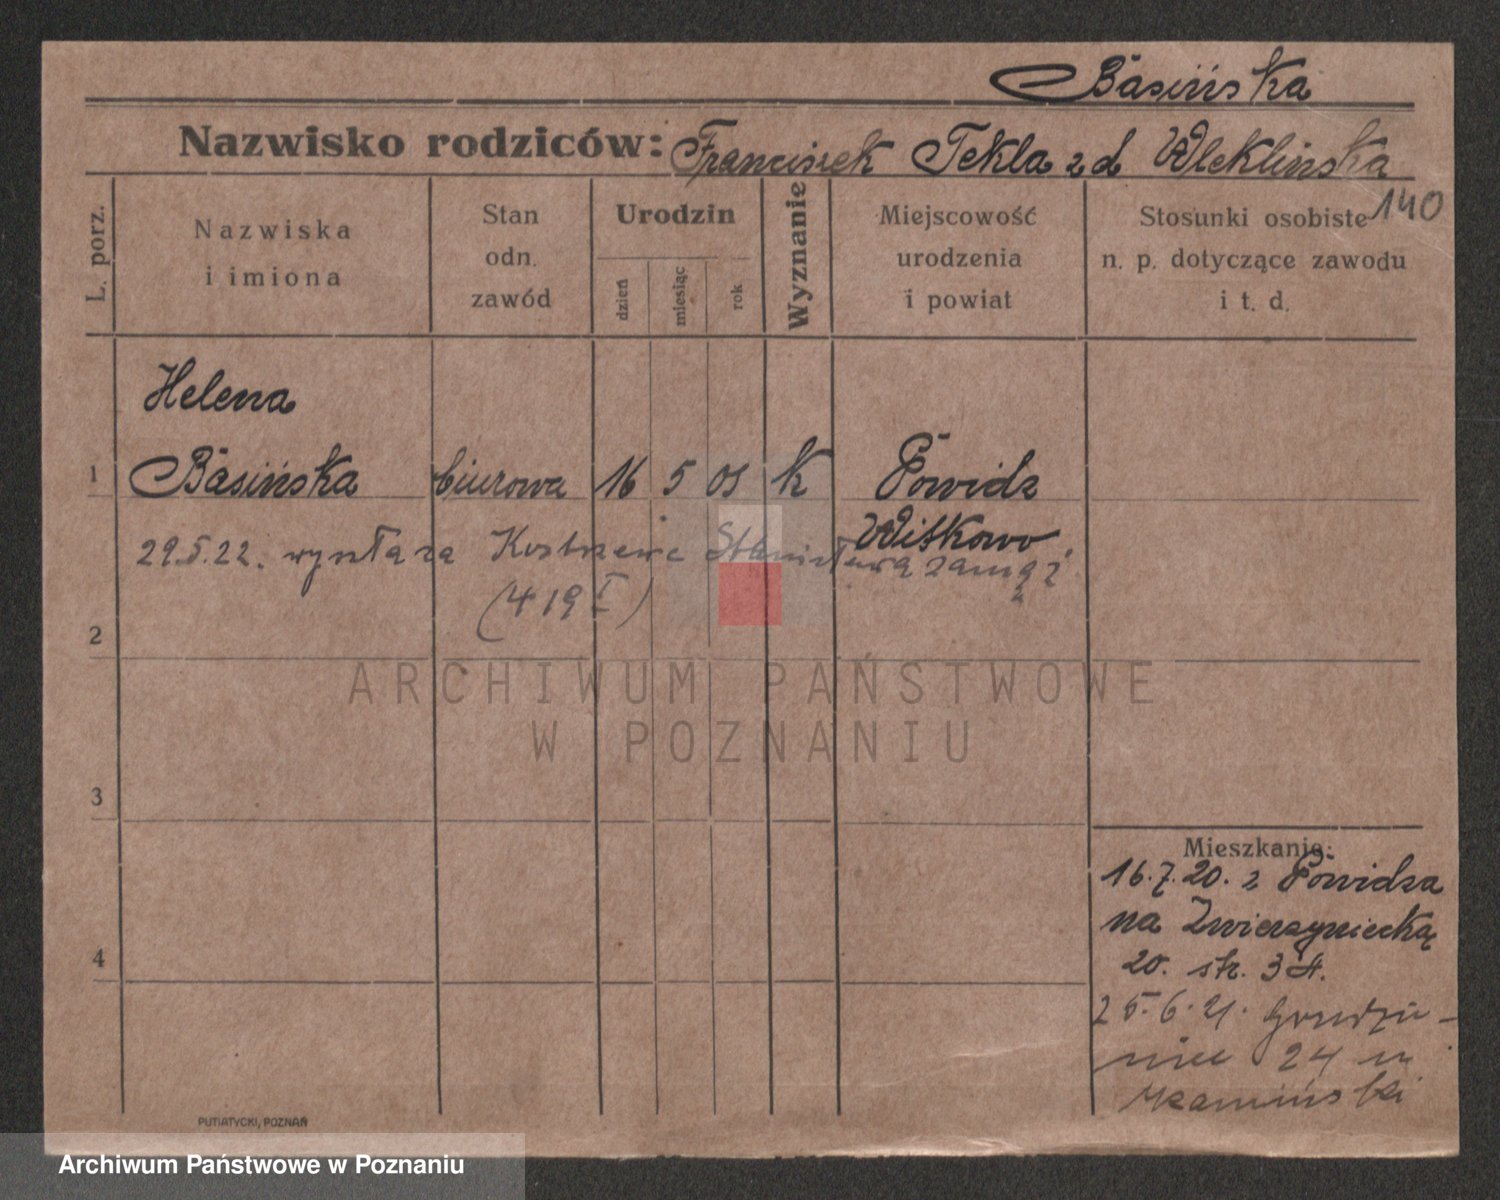 Basińska
Nazwisko rodziców: Franciszek Tekla z d Wleklińska
140
L. porz.
Nazwiska
i imiona
Stan
odn.
zawód
Urodzin
dzień
miesiąc
rok
Wyznanie
Miejscowość
urodzenia
i powiat
Stosunki osobiste
n. p. dotyczące zawodu
i t. d.
Helena
1 Basińska biurowa 16 5 01 k Powidz
Witkowo
29.5.22. wyszła za Stanisława zamąż
(419 I)
2
ARCHIWUM PAŃSTWOWE
W POZNANIU
3
4
Mieszkanie:
16.7.20. z Powidza
na Zwierzyniecką
20. str. 34.
25.6.21.
24 m
Kamiński
PUTIATYCKI, POZNAŃ
Archiwum Państwowe w Poznaniu